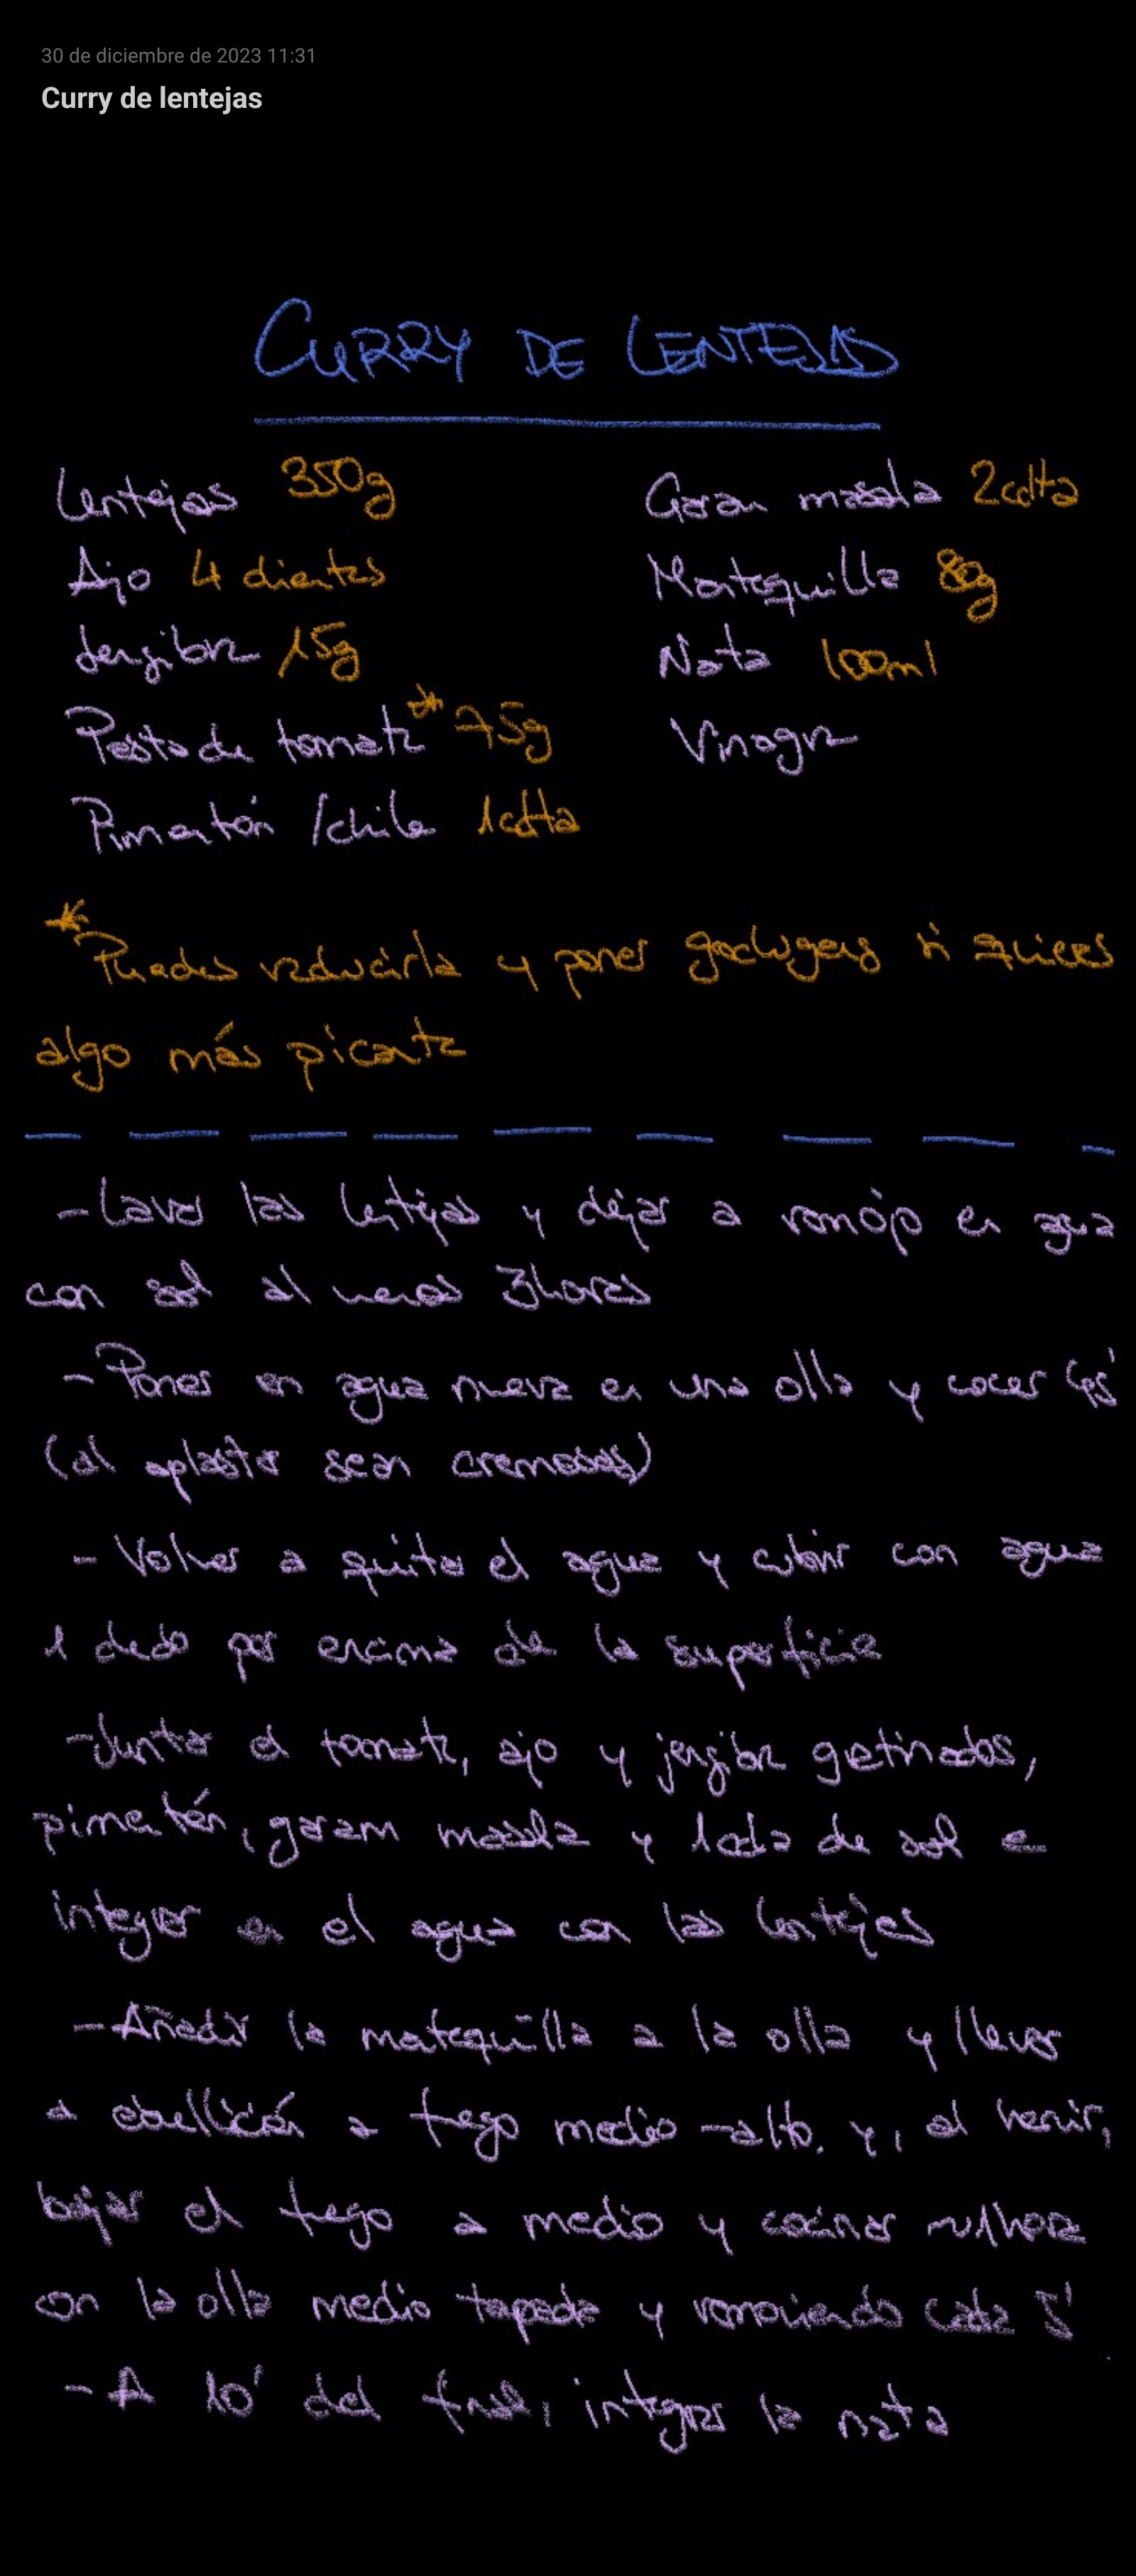 30 de diciembre de 2023 11:31
Curry de lentejas
CURRY DE LENTEJAS
Lentejas 350g
Ajo 4 dientes
Jengibre 15g
Pasta de tomate * 75g
Pimentón /chile 1cdta
Garam masala 2cdta
Mantequilla 80g
Nata 100ml
Vinagre
* Puedes reducirla y poner gochugang si quieres
algo más picante
- Lavar las lentejas y dejar a remojo en agua
con sal al menos 3horas
- Poner en agua nueva en una olla y cocer 45'
(al aplastar sean cremosas)
- Volver a quitar el agua y cubrir con agua
1 dedo por encima de la superficie
- Juntar el tomate, ajo y jengibre gratinados,
pimentón, garam masala y 1cda de sal e
integrar en el agua con las lentejas
- Añadir la mantequilla a la olla y llevar
a ebullición a fuego medio-alto. y, al hervir,
bajar el fuego a medio y cocinar ~1hora
con la olla medio tapada y removiendo cada 5'
- A 10' del final, integrar la nata